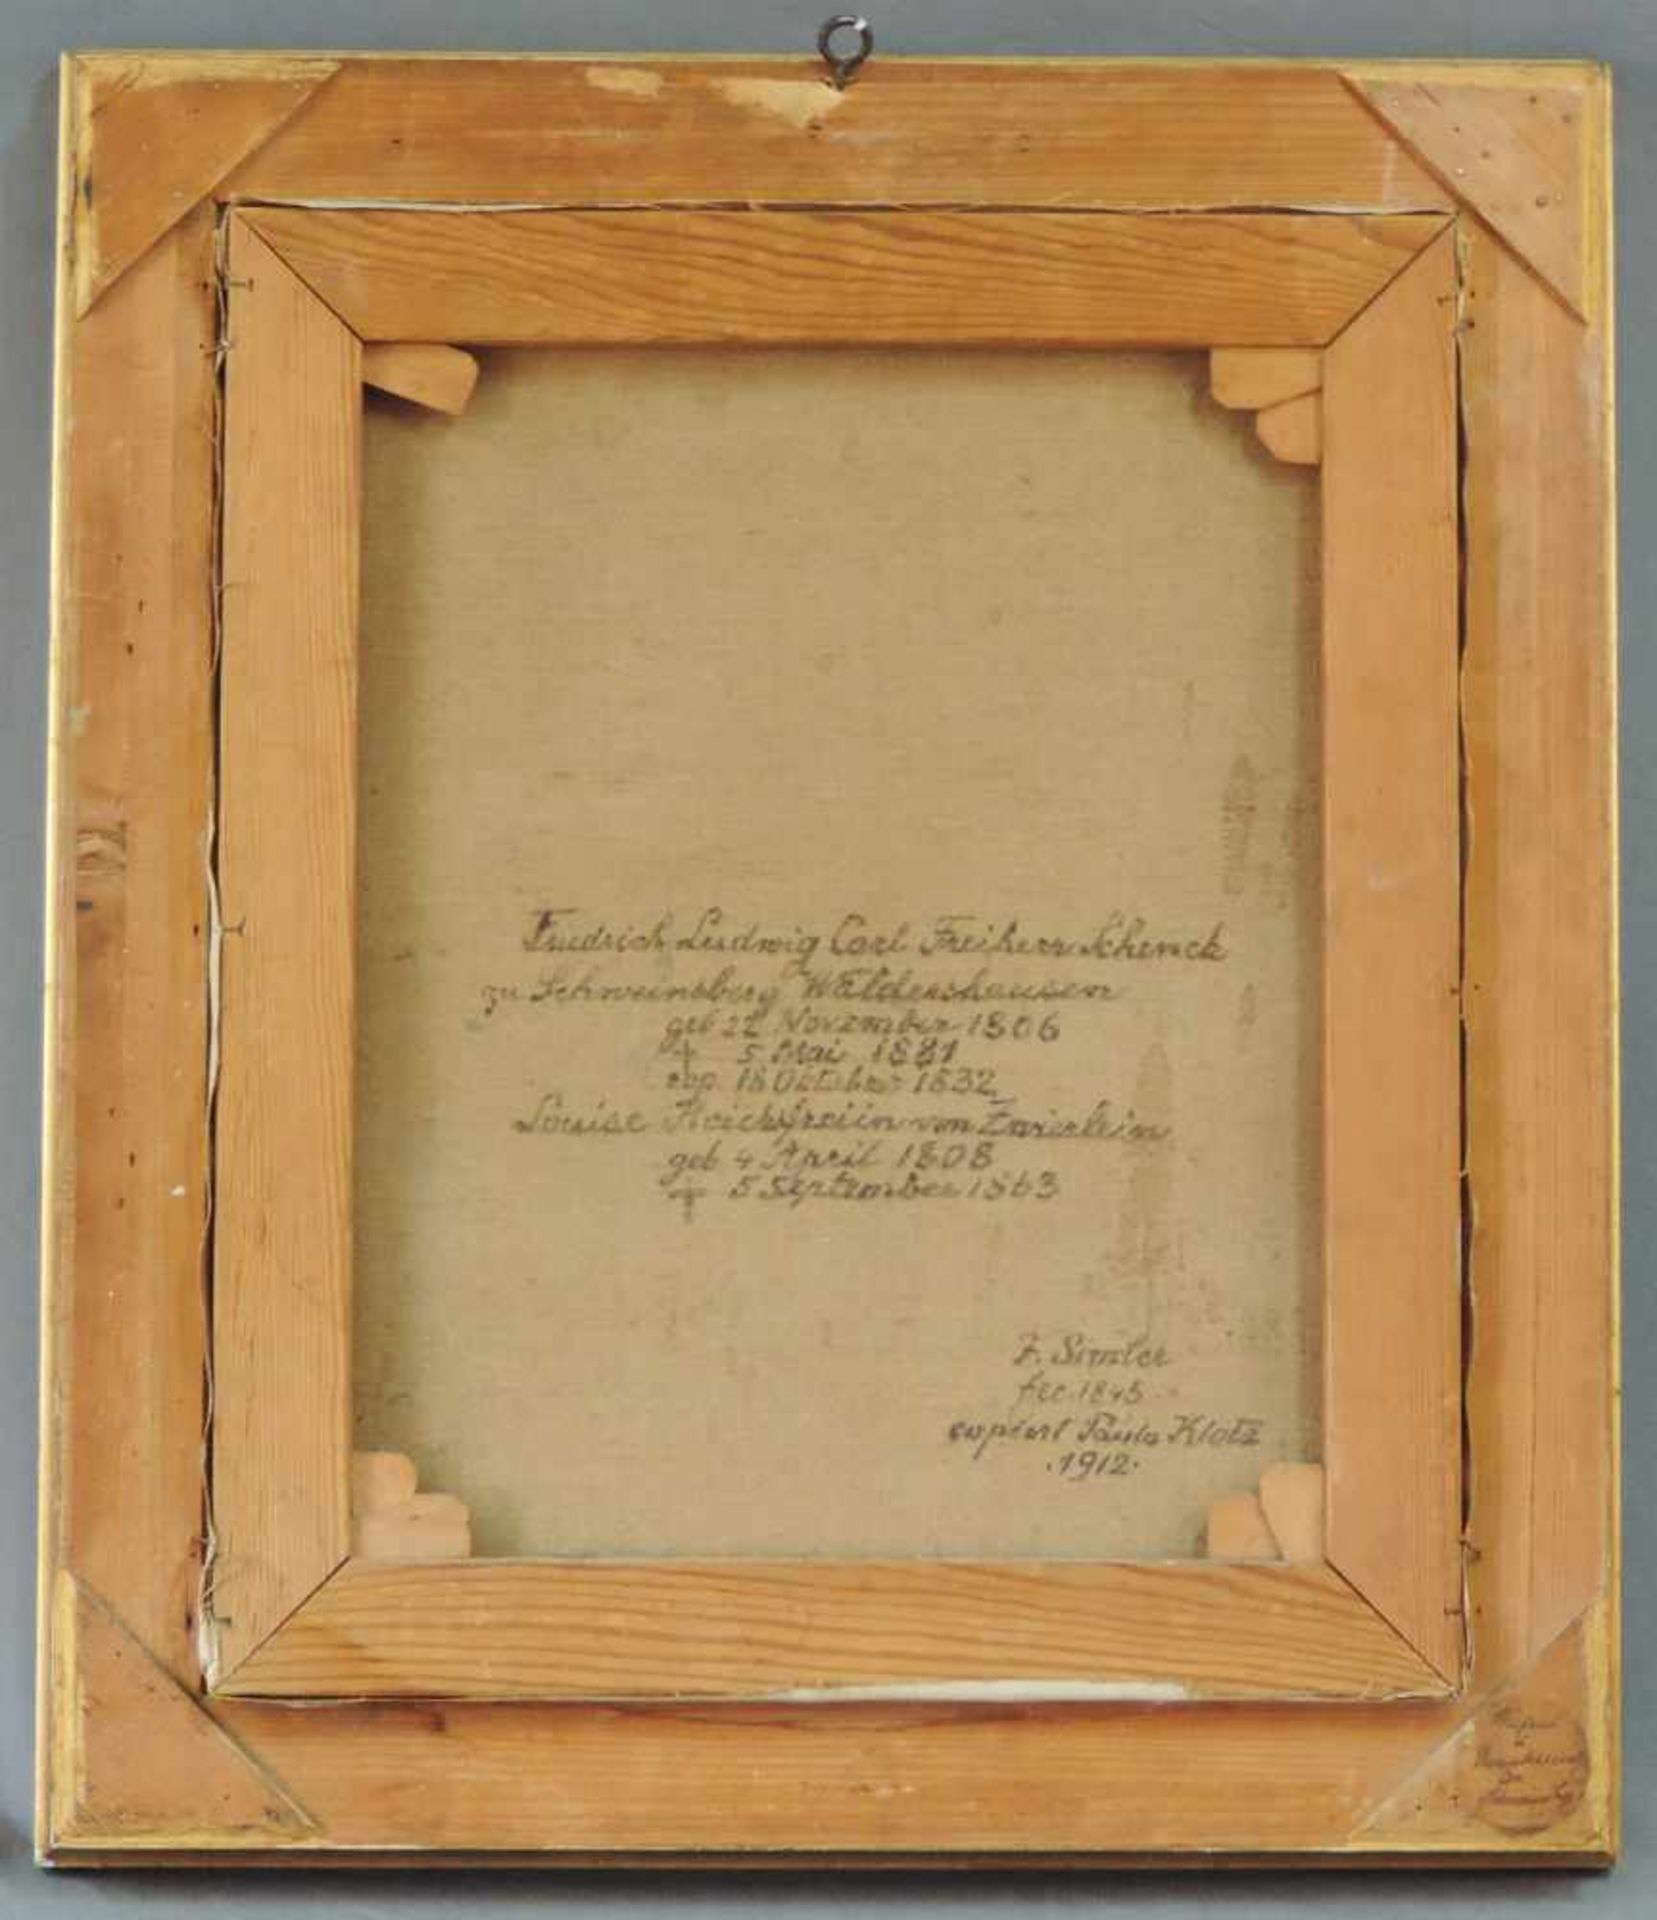 Friedrich Ludwig Carl Freiherr Schenck
zu Schweinsberg Wäldershausen
geb 22 November 1806
† 5 Mai 1881
cop. 18 October 1832
Louise Reichsfreiin von Zwierlein
geb 4 April 1808
† 5 September 1863
F. Simler
fec. 1845
copiert Paula Klotz
.1912.